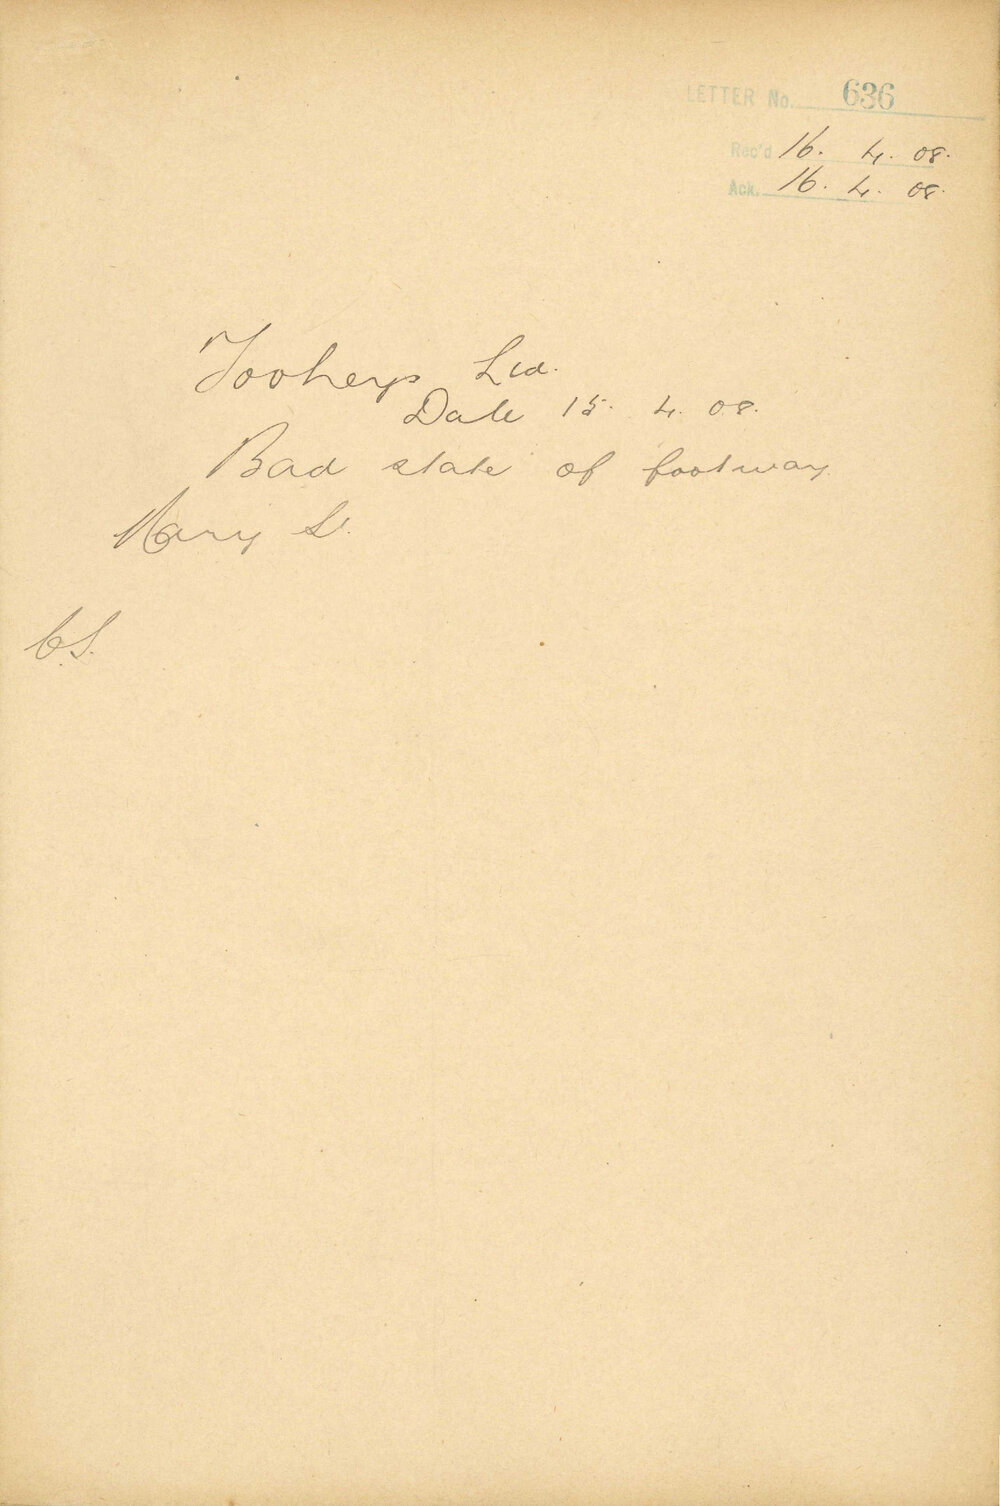 LETTER No. 636
Rec'd 16. 4. 08.
Ack. 16. 4. 08.
Tooheys Ltd.
Date 15. 4. 08.
Bad state of footway
Mary St.
C.S.